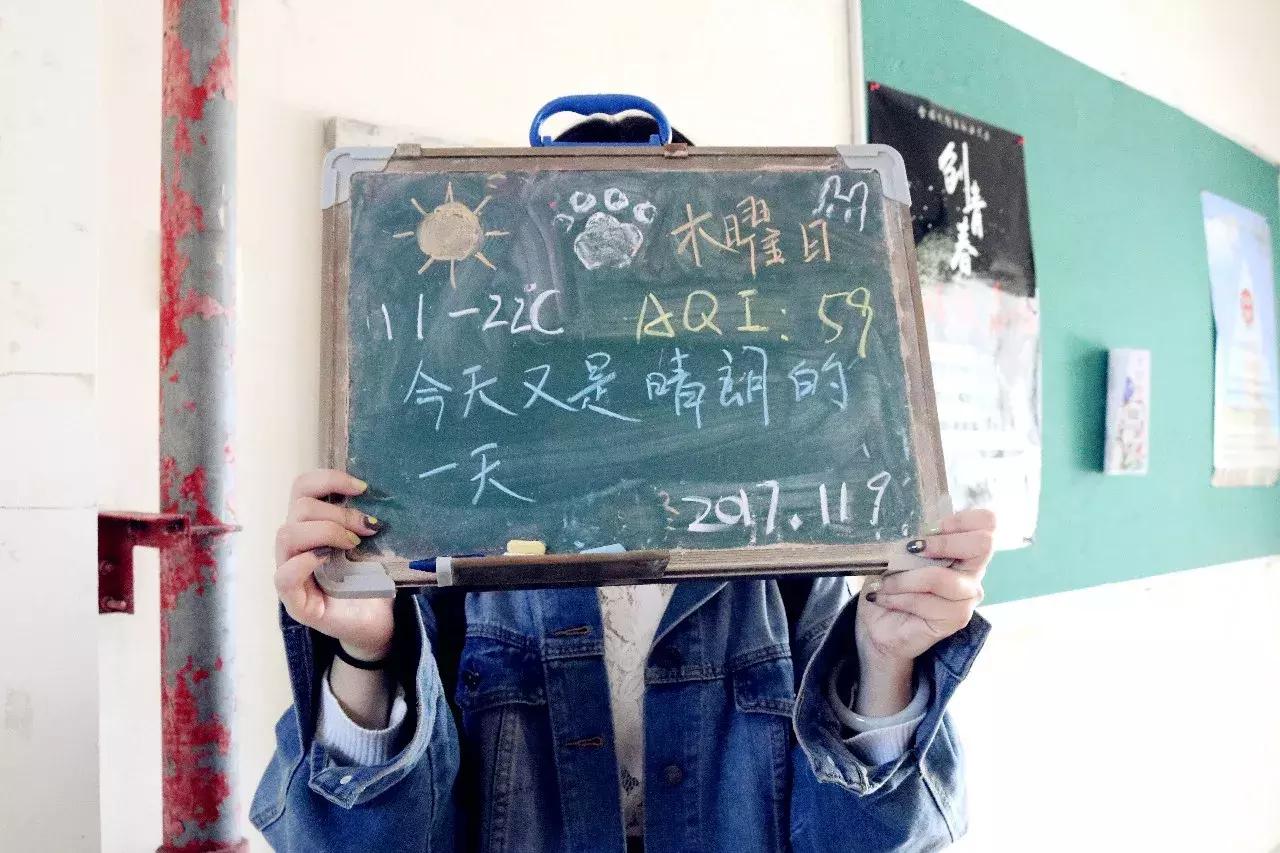 木曜日
11-22℃ AQI:59
今天又是晴朗的
一天
2017.11.9
创青春